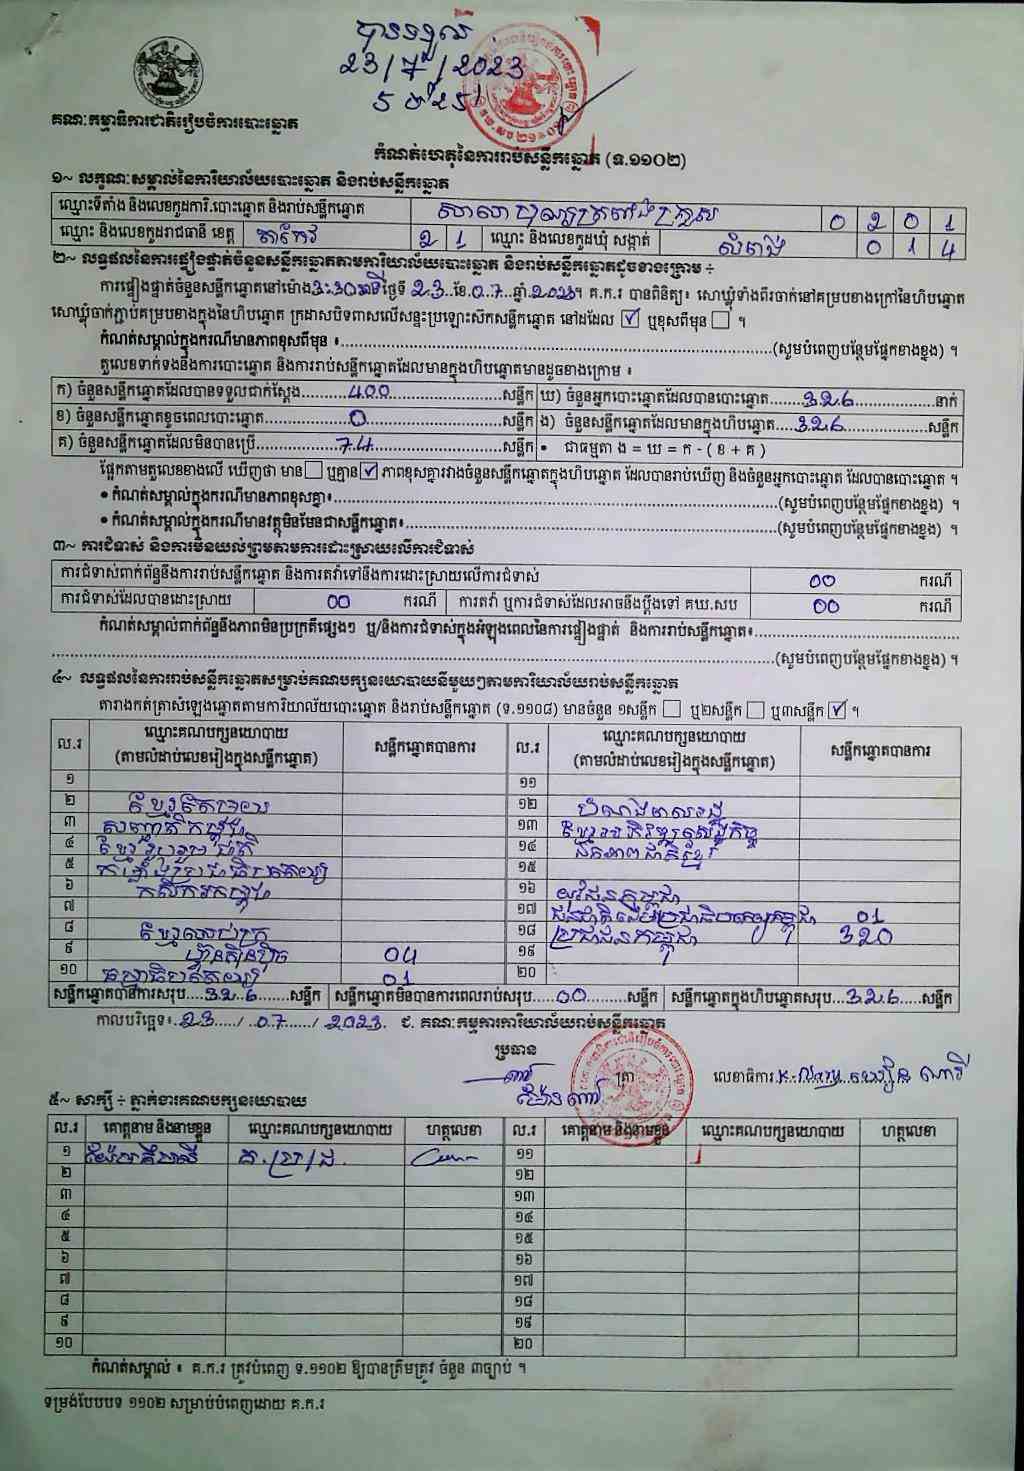 បានទទួល
23/7/2023
5 ម៉ 25
គណៈកម្មាធិការជាតិរៀបចំការបោះឆ្នោត
កំណត់ហេតុនៃការរាប់សន្លឹកឆ្នោត (ទ.១១០២)
១~ លក្ខណៈសម្គាល់នៃការិយាល័យបោះឆ្នោត និងរាប់សន្លឹកឆ្នោត
ឈ្មោះទីតាំង និងលេខកូដការិ.បោះឆ្នោត និងរាប់សន្លឹកឆ្នោត សាលាបុណ្យត្រពាំង 0 2 0 1
ឈ្មោះ និងលេខកូដរាជធានី ខេត្ត តាកែវ 2 1 ឈ្មោះ និងលេខកូដឃុំ សង្កាត់ សំពាង 0 1 4
២~ លទ្ធផលនៃការផ្ទៀងផ្ទាត់ចំនួនសន្លឹកឆ្នោតតាមការិយាល័យបោះឆ្នោត និងរាប់សន្លឹកឆ្នោតដូចខាងក្រោម ÷
ការផ្ទៀងផ្ទាត់ចំនួនសន្លឹកឆ្នោតនៅម៉ោង 3:30នាទី ថ្ងៃទី 23 ខែ 07 ឆ្នាំ 2023។ គ.ក.រ បានពិនិត្យ៖ សោឃ្លុំទាំងពីរចាក់នៅគម្របខាងក្រៅនៃហិបឆ្នោត
សោឃ្លុំចាក់ភ្ជាប់គម្របខាងក្នុងនៃហិបឆ្នោត ក្រដាសបិទពាសលើសន្ទះប្រឡោះស៊កសន្លឹកឆ្នោត នៅដដែល ☑ ឬខុសពីមុន ☐ ។
កំណត់សម្គាល់ក្នុងករណីមានភាពខុសពីមុន ៖ (សូមបំពេញបន្ថែមផ្នែកខាងខ្នង) ។
តួលេខទាក់ទងនឹងការបោះឆ្នោត និងការរាប់សន្លឹកឆ្នោតដែលមានក្នុងហិបឆ្នោតមានដូចខាងក្រោម ៖
ក) ចំនួនសន្លឹកឆ្នោតដែលបានទទួលជាក់ស្តែង 400 សន្លឹក ឃ) ចំនួនអ្នកបោះឆ្នោតដែលបានបោះឆ្នោត 326 នាក់
ខ) ចំនួនសន្លឹកឆ្នោតខូចពេលបោះឆ្នោត 0 សន្លឹក ង) ចំនួនសន្លឹកឆ្នោតដែលមានក្នុងហិបឆ្នោត 326 សន្លឹក
គ) ចំនួនសន្លឹកឆ្នោតដែលមិនបានប្រើ 74 សន្លឹក • ជាធម្មតា ង = ឃ = ក - ( ខ + គ )
ផ្អែកតាមតួលេខខាងលើ ឃើញថា មាន ☐ ឬគ្មាន ☑ ភាពខុសគ្នារវាងចំនួនសន្លឹកឆ្នោតក្នុងហិបឆ្នោត ដែលបានរាប់ឃើញ និងចំនួនអ្នកបោះឆ្នោត ដែលបានបោះឆ្នោត ។
• កំណត់សម្គាល់ក្នុងករណីមានភាពខុសគ្នា៖ (សូមបំពេញបន្ថែមផ្នែកខាងខ្នង) ។
• កំណត់សម្គាល់ក្នុងករណីមានវត្ថុមិនមែនជាសន្លឹកឆ្នោត៖ (សូមបំពេញបន្ថែមផ្នែកខាងខ្នង) ។
៣~ ការជំទាស់ និងការមិនយល់ព្រមតាមការដោះស្រាយលើការជំទាស់
ការជំទាស់ពាក់ព័ន្ធនឹងការរាប់សន្លឹកឆ្នោត និងការតវ៉ាទៅនឹងការដោះស្រាយលើការជំទាស់ 00 ករណី
ការជំទាស់ដែលបានដោះស្រាយ 00 ករណី ការតវ៉ា ឬការជំទាស់ដែលអាចនឹងប្តឹងទៅ គឃ.សប 00 ករណី
កំណត់សម្គាល់ពាក់ព័ន្ធនឹងភាពមិនប្រក្រតីផ្សេងៗ ឬ/និងការជំទាស់ក្នុងអំឡុងពេលនៃការផ្ទៀងផ្ទាត់ និងការរាប់សន្លឹកឆ្នោត៖
(សូមបំពេញបន្ថែមផ្នែកខាងខ្នង) ។
៤~ លទ្ធផលនៃការរាប់សន្លឹកឆ្នោតសម្រាប់គណបក្សនយោបាយនីមួយៗតាមការិយាល័យរាប់សន្លឹកឆ្នោត
តារាងកត់ត្រាសំឡេងឆ្នោតតាមការិយាល័យបោះឆ្នោត និងរាប់សន្លឹកឆ្នោត (ទ.១១០៨) មានចំនួន ១សន្លឹក ☐ ឬ២សន្លឹក ☐ ឬ៣សន្លឹក ☑ ។
ល.រ ឈ្មោះគណបក្សនយោបាយ (តាមលំដាប់លេខរៀងក្នុងសន្លឹកឆ្នោត) សន្លឹកឆ្នោតបានការ ល.រ ឈ្មោះគណបក្សនយោបាយ (តាមលំដាប់លេខរៀងក្នុងសន្លឹកឆ្នោត) សន្លឹកឆ្នោតបានការ
១ ១១
២ ខ្មែរតែមួយ ១២ សំណាងមាស
៣ សញ្ជាតិកម្ពុជា ១៣ ខ្មែរអភិវឌ្ឍន៍សេដ្ឋកិច្ច
៤ ខ្មែររួបរួមជាតិ ១៤ ឯកភាពជាតិខ្មែរ
៥ កម្លាំងប្រជាធិបតេយ្យ ១៥
៦ កសិករកម្ពុជា ១៦ យុវជនកម្ពុជា
៧ ១៧ ជនជាតិដើមប្រជាធិបតេយ្យកម្ពុជា 01
៨ ខ្មែរឈប់ក្រ ១៨ ប្រជាជនកម្ពុជា 320
៩ ហ៊្វុនស៊ិនប៉ិច 04 ១៩
១០ ធម្មាធិបតេយ្យ 01 ២០
សន្លឹកឆ្នោតបានការសរុប 326 សន្លឹក សន្លឹកឆ្នោតមិនបានការពេលរាប់សរុប 00 សន្លឹក សន្លឹកឆ្នោតក្នុងហិបឆ្នោតសរុប 326 សន្លឹក
កាលបរិច្ឆេទ៖ 23 / 07 / 2023 ជ. គណៈកម្មការការិយាល័យរាប់សន្លឹកឆ្នោត
ប្រធាន
ត្រា លេខាធិការ
៥~ សាក្សី ÷ ភ្នាក់ងារគណបក្សនយោបាយ
ល.រ គោត្តនាម និងនាមខ្លួន ឈ្មោះគណបក្សនយោបាយ ហត្ថលេខា ល.រ គោត្តនាម និងនាមខ្លួន ឈ្មោះគណបក្សនយោបាយ ហត្ថលេខា
១ គ.ប្រ.ជ ១១
២ ១២
៣ ១៣
៤ ១៤
៥ ១៥
៦ ១៦
៧ ១៧
៨ ១៨
៩ ១៩
១០ ២០
កំណត់សម្គាល់ ៖ គ.ក.រ ត្រូវបំពេញ ទ.១១០២ ឱ្យបានត្រឹមត្រូវ ចំនួន ៣ច្បាប់ ។
ទម្រង់បែបបទ ១១០២ សម្រាប់បំពេញដោយ គ.ក.រ